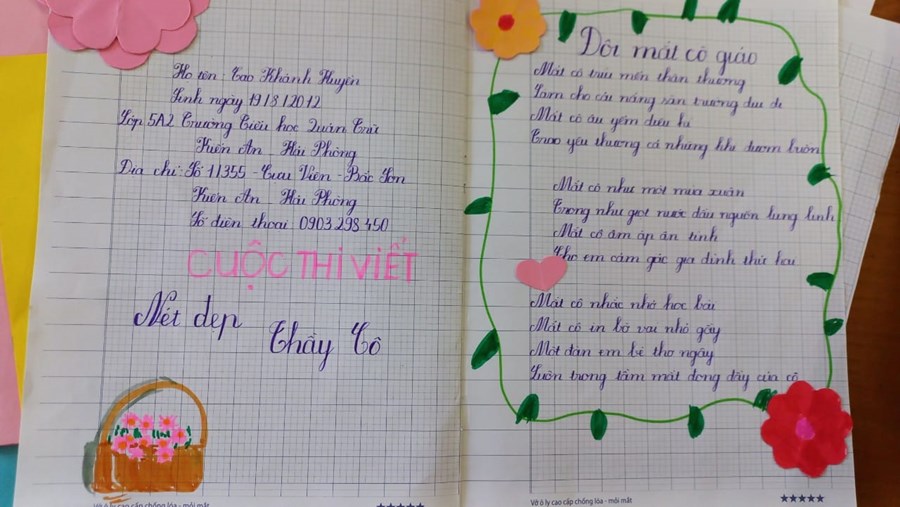 Họ tên: Cao Khánh Huyền
Sinh ngày 19/8/2012
Lớp 5A2 Trường Tiểu học Quán Trữ
Kiến An - Hải Phòng
Địa chỉ: Số 11355 - Trưu Viên - Bắc Sơn
Kiến An - Hải Phòng
Số điện thoại 0903.298.450
CUỘC THI VIẾT
Nét đẹp
Thầy Cô
Vở ô ly cao cấp chống lóa - mỏi mắt
Đôi mắt cô giáo
Mắt cô trìu mến thân thương
Làm cho cái nắng sân trường dịu đi
Mắt cô âu yếm diệu kì
Trao yêu thương cả những khi đượm buồn
Mắt cô như một mùa xuân
Trong như giọt nước đầu nguồn lung linh
Mắt cô ấm áp ân tình
Cho em cảm giác gia đình thứ hai
Mắt cô nhắc nhở học bài
Mắt cô in bờ vai nhỏ gầy
Một đàn em bé thơ ngây
Luôn trong tầm mắt dong đầy của cô
Vở ô ly cao cấp chống lóa - mỏi mắt